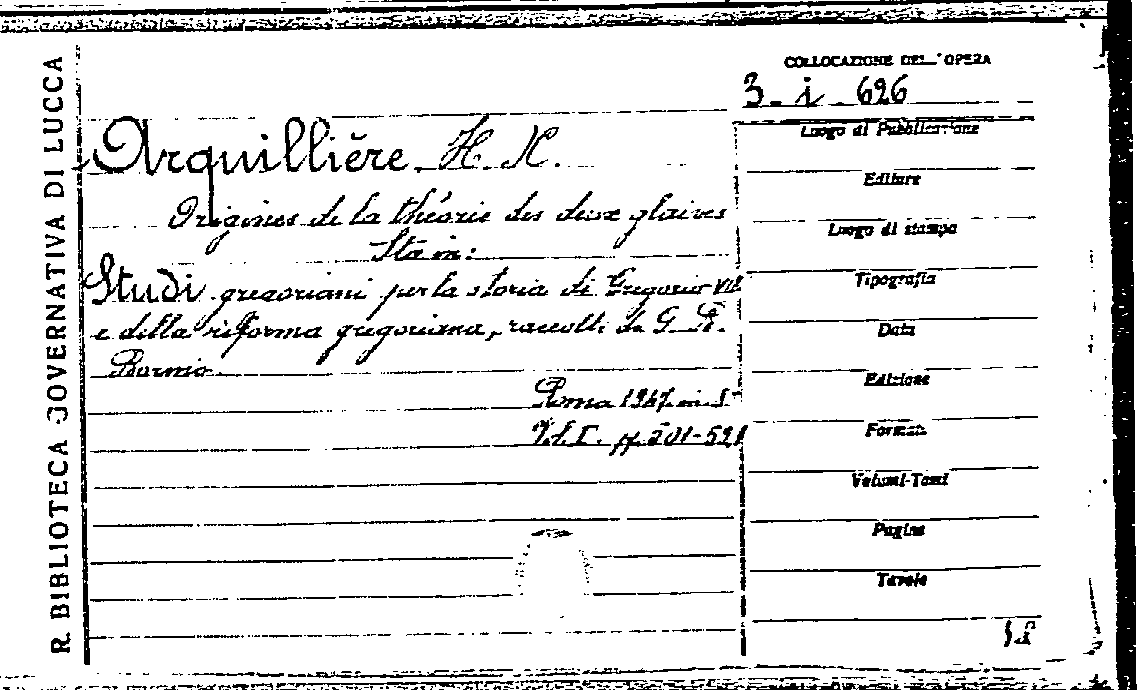 R. BIBLIOTECA GOVERNATIVA DI LUCCA
COLLOCAZIONE DELL'OPERA
3. i. 626
Arquillière H. X.
Origines de la théorie des deux glaives
Sta in:
Studi gregoriani per la storia di Gregorio VII
e della riforma gregoriana, raccolti da G. B.
Borino
Roma 1947 in 8°
Vol. I. pp. 501-521
Luogo di Pubblicazione
Editore
Luogo di stampa
Tipografia
Data
Edizione
Formato
Volumi-Tomi
Pagine
Tavole